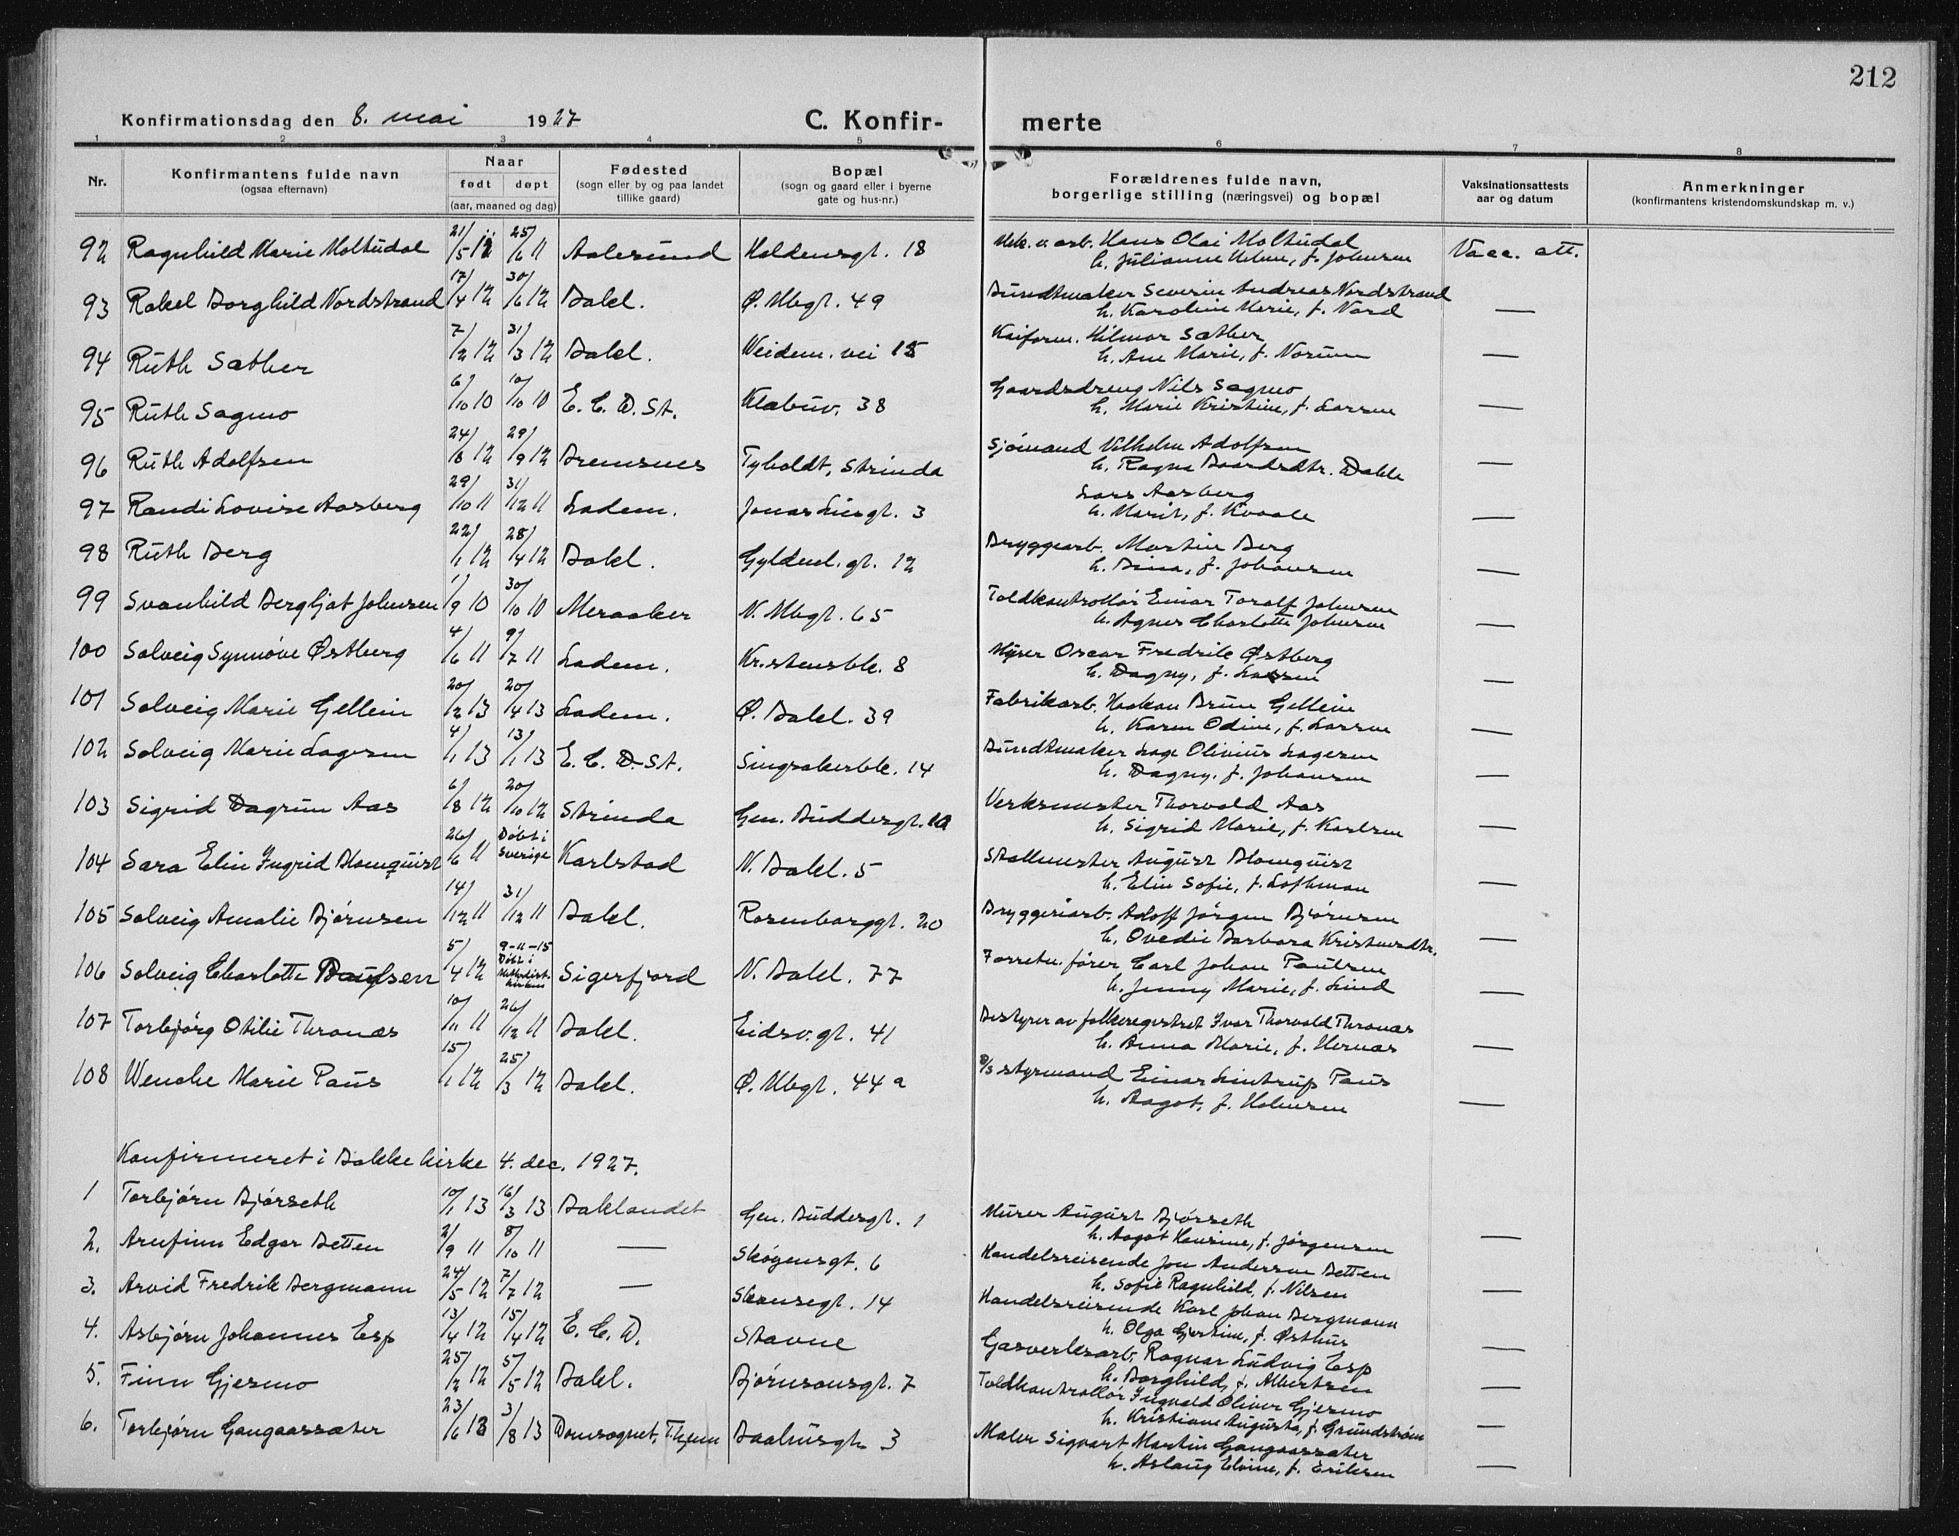 212
Konfirmationsdag den 8. mai 1927 C. Konfir- merte
1 2 3 4 5 6 7 8
Nr. Konfirmantens fulde navn (ogsaa efternavn) Naar født døpt (aar, maaned og dag) Fødested (sogn eller by og paa landet tillike gaard) Bopæl (sogn og gaard eller i byerne gate og hus-nr.) Forældrenes fulde navn, borgerlige stilling (næringsvei) og bopæl Vaksinationsattests aar og datum Anmerkninger (konfirmantens kristendomskundskap m. v.)
92 Ragnhild Marie Moltudal 21/5 12 25/6 11 Aalesund Haldensgt. 18 Hans Olai Moltudal Vacc. att.
h. Julianne f. Johnsen
93 Rakel Borghild Nordstrand 17/4 12 30/6 12 Bakl. Ø. Mbgt. 49 Bundtmaker Severin Andreas Nordstrand
h. Karoline Marie, f. Nord —
94 Ruth Sæther 7/2 12 31/3 12 Bakl. Weidem. vei 15 Kaiform. Hilmar Sæther
h. Ane Marie, f. Norum —
95 Ruth Sagmo 6/10 10 10/10 10 E. C. D. St. Klæbuv. 38 Gaardsdreng Nils Sagmo
h. Marie Kristine, f. Larsen —
96 Ruth Adolfsen 24/8 12 29/9 12 Bremsnes Tyholdt, Strinda Sjømand Vilhelm Adolfsen
h. Ragna Baardsdtr. Dahle —
97 Randi Lovise Aasberg 29/10 11 31/12 11 Ladem. Jonas Liesgt. 3 Lars Aasberg
h. Marit, f. Kvaale —
98 Ruth Berg 22/1 12 28/4 12 Bakl. Gyldenl. gt. 12 Bryggearb. Martin Berg
h. Dina, f. Johansen —
99 Svanhild Bergljot Johnsen 1/9 10 30/10 10 Meraaker N. Mbgt. 65 Toldkontrollør Einar Toralf Johnsen
h. Agnes Charlotte Johnsen —
100 Solveig Synnøve Østberg 4/6 11 9/7 11 Ladem. Kristensbk. 8 Murer Oscar Fredrik Østberg
h. Dagny, f. Larsen —
101 Solveig Marie Gellein 20/2 13 20/4 13 Ladem. Ø. Bakl. 39 Fabrikarb. Haakon Brun Gellein
h. Karen Odine, f. Larsen —
102 Solveig Marie Lagesen 4/1 13 13/1 13 E. C. D. St. Singsakerbk. 14 Bundtmaker Lage Olivius Lagesen
h. Dagny, f. Johansen —
103 Sigrid Dagrun Aas 6/8 12 20/10 12 Strinda Gen. Buddesgt. 10 Verksmester Thorvald Aas
h. Sigrid Marie, f. Karlsen —
104 Sara Elin Ingrid Blomquist 26/6 11 Døbt i Sverige Karlstad N. Bakl. 5 Stallmester August Blomquist
h. Elin Sofie, f. Lofthman —
105 Solveig Amalie Bjørnsen 14/12 11 31/12 11 Bakl. Rosenborggt. 20 Bryggeriarb. Adolf Jørgen Bjørnsen
h. Ovedie Barbara Kristensdtr. —
106 Solveig Charlotte Paulsen 5/4 12 9-11-15 Døbt i Methodistkirken Sigerfjord N. Bakl. 77 Forretn. fører Carl Johan Paulsen
h. Jenny Marie, f. Lind —
107 Torbjørg Otilie Thronæs 10/11 11 26/12 11 Bakl. Eidsv. gt. 41 Bestyrer av folkeregistret Ivar Thorvald Thronæs
h. Anna Marie, f. Hernæs —
108 Wenche Marie Paus 15/1 12 25/3 12 Bakl. Ø. Mbgt. 44 a styrmand Einar Lintrup Paus
h. Aagot, f. Holmsen —
Konfirmeret i Bakke kirke 4. dec. 1927.
1 Torbjørn Bjørseth 10/1 13 16/3 13 Baklandet Gen. Buddesgt. 1 Murer August Bjørseth
h. Aagot Henrine, f. Jørgensen —
2. Arnfinn Edgar Detten 2/9 11 8/10 11 — Skøyensgt. 6 Handelsreisende Jon Andersen Detten
h. Sofie Ragnhild, f. Nilsen —
3. Arvid Fredrik Bergmann 24/5 12 7/7 12 — Skansegt. 14 Handelsreisende Karl Johan Bergmann
h. Olga Gjertine, f. Østhus —
4. Asbjørn Johannes Esp 13/4 12 15/4 12 E. C. D. Stavne Gasverksarb. Ragnar Ludvig Esp
h. Borghild, f. Albertsen —
5. Finn Gjermo 25/2 12 5/5 12 Bakl. Bjørnsonsgt. 7 Toldkontrollør Ingvald Oliver Gjermo
h. Kristiane Augusta, f. Grundstrøm —
6. Torbjørn Gangaassæter 23/6 13 3/8 13 Domsognet, Thjem Baahusgt. 3 Maler Sigvart Martin Gangaassæter
h. Aslaug Elvine, f. Eriksen —